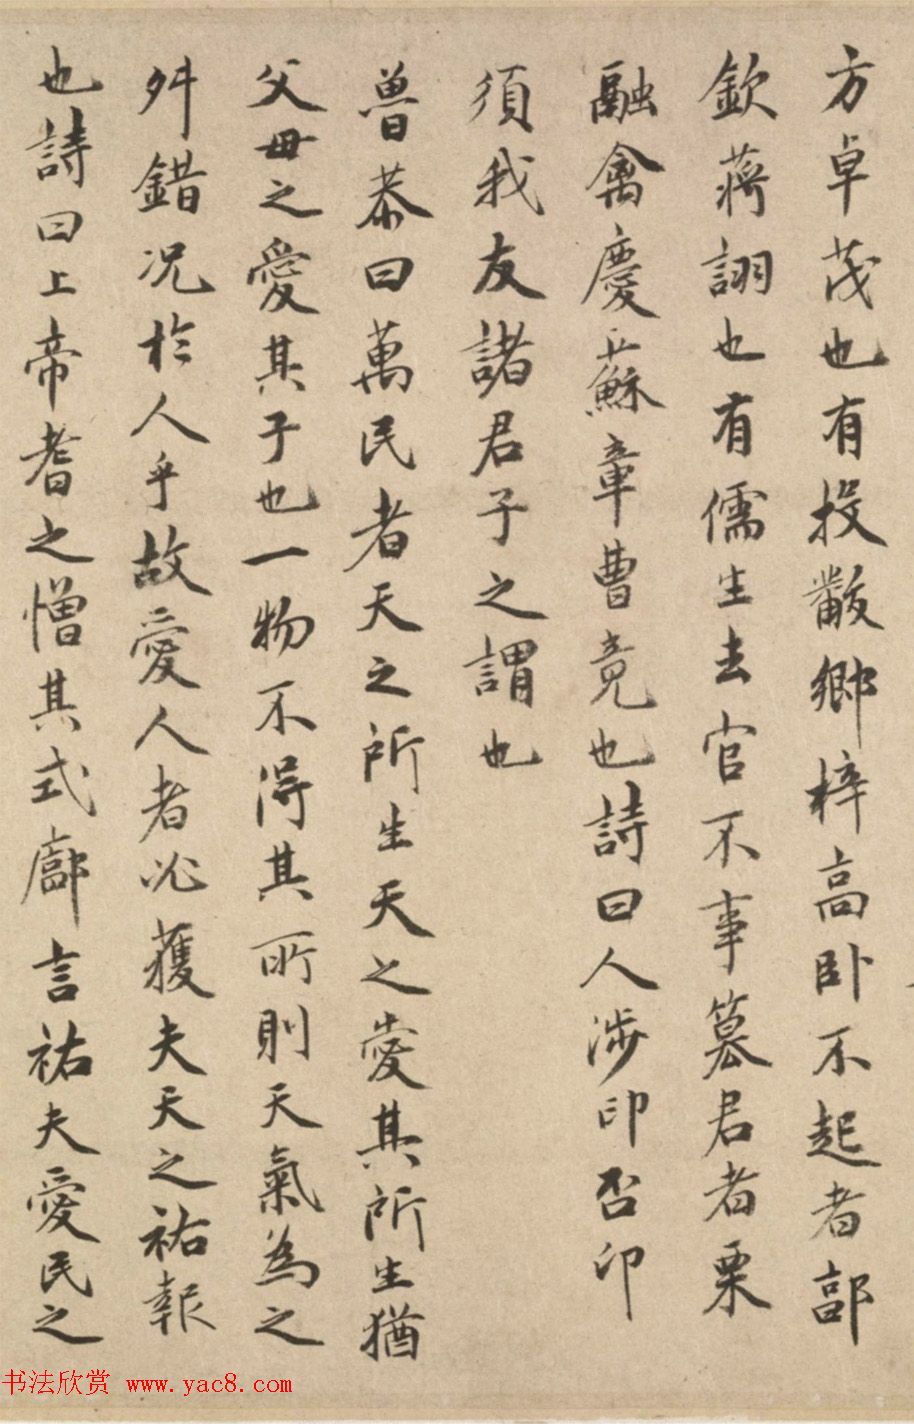 方卓茂也有投黻鄉梓高卧不起者郃
欽蒋詡也有儒生去官不事篡君者栗
融禽慶蘇章曹竟也詩曰人涉卬否卬
須我友諸君子之謂也
魯恭曰萬民者天之所生天之愛其所生猶
父母之愛其子也一物不得其所則天氣為之
舛錯况於人乎故愛人者必獲夫天之祐報
也詩曰上帝耆之憎其式廓言祐夫愛民之
书法欣赏 www.yac8.com